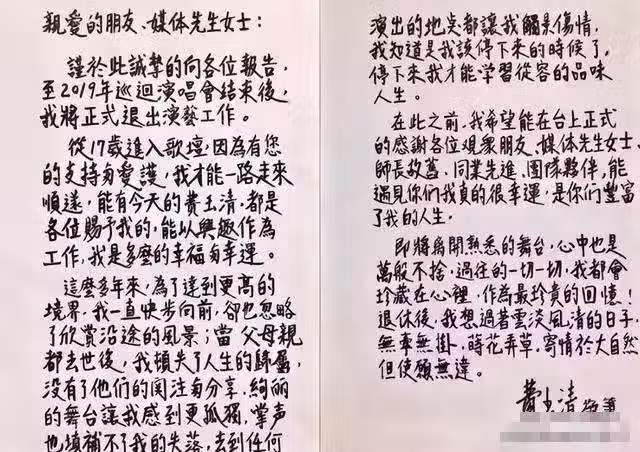 親愛的朋友、媒体先生女士：
謹於此誠摯的向各位報告，
至2019年巡迴演唱會結束後，
我將正式退出演藝工作。
從17歲進入歌壇，因為有您
的支持与愛護，我才能一路走來
順遂，能有今天的費玉清，都是
各位賜予我的，能以興趣作為
工作，我是多麼的幸福与幸運。
這麼多年來，為了達到更高的
境界，我一直快步向前，卻也忽略
了欣賞沿途的風景；當父母親
都去世後，我頓失了人生的歸屬，
沒有了他們的関注与分享，絢麗
的舞台讓我感到更孤獨，掌声
也填補不了我的失落，去到任何
演出的地点都讓我觸景傷情，
我知道是我該停下來的時候了，
停下來我才能学習從容的品味
人生。
在此之前，我希望能在台上正式
的感謝各位現衆朋友、媒体先生女士、
師長故舊、同業先進、團隊夥伴，能
遇見你们我真的很幸運，是你们豐富
了我的人生。
即將離開熟悉的舞台，心中也是
萬般不捨，過往的一切一切，我都會
珍藏在心裡，作為最珍貴的回憶！
退休後，我想過著雲淡風清的日子，
無牽無掛，時花弄草，寄情於大自然
但使願無違。
費玉清 敬筆